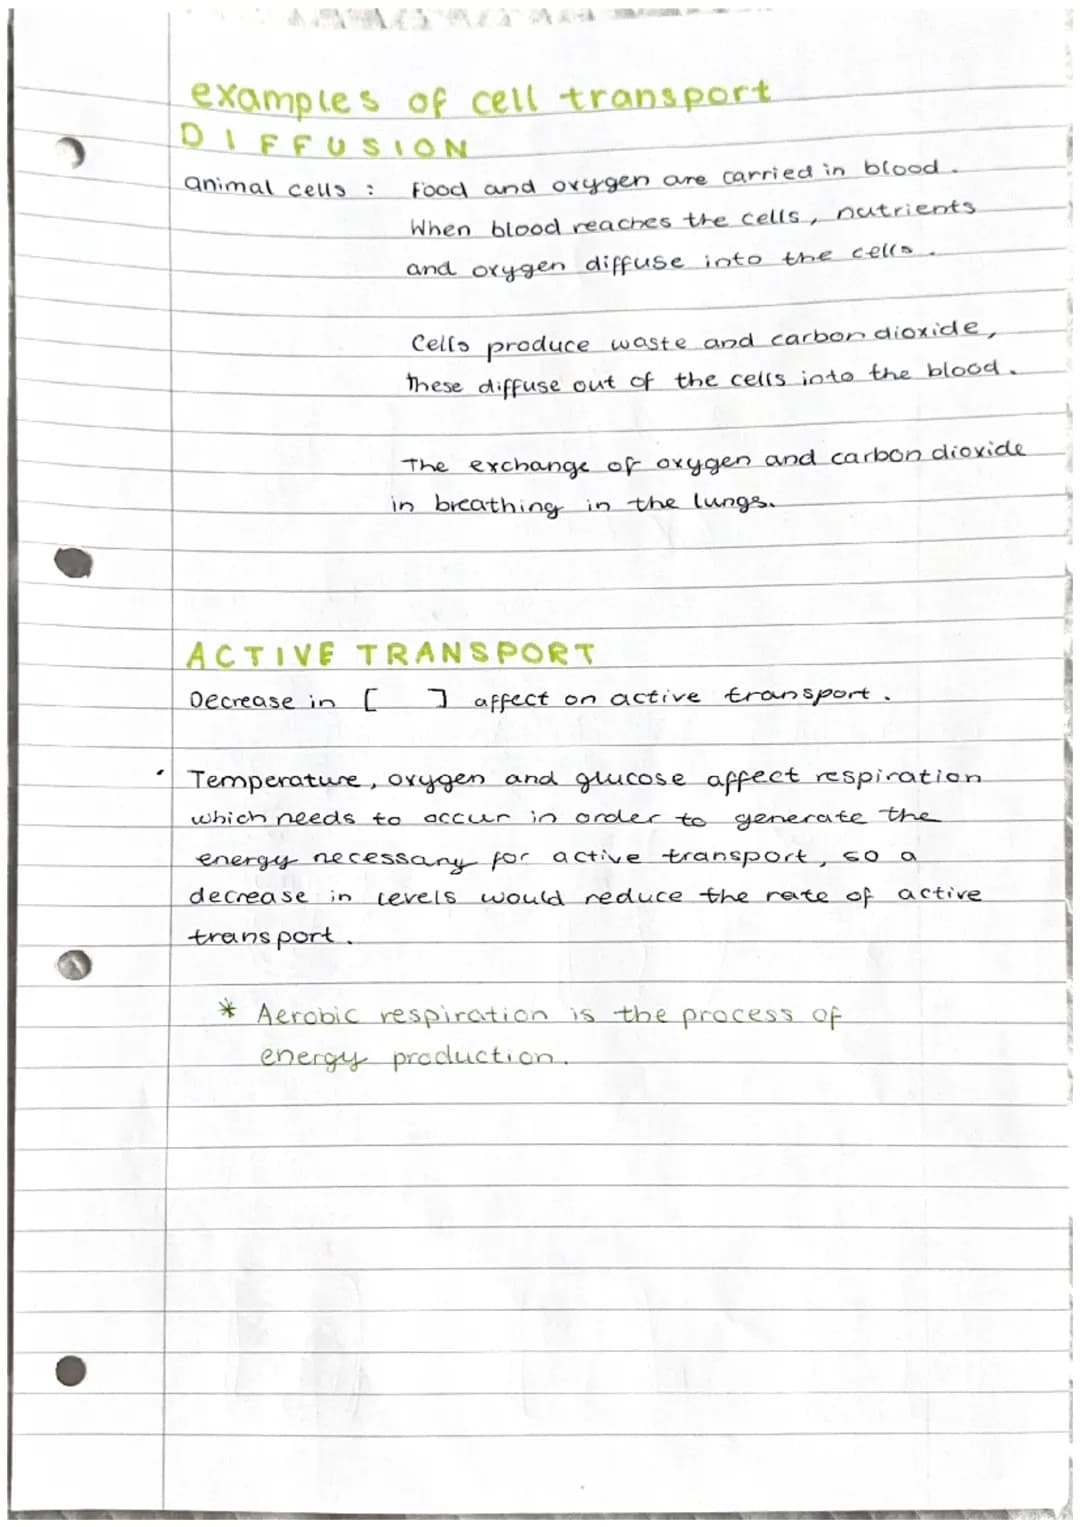 examples of cell transport
DIFFUSION
animal cells : Food and oxygen are carried in blood.
When blood reaches the cells, nutrients
and oxygen diffuse into the cells.
Cells produce waste and carbon dioxide,
these diffuse out of the cells into the blood.
The exchange of oxygen and carbon dioxide
in breathing in the lungs.
ACTIVE TRANSPORT
Decrease in [ ] affect on active transport.
• Temperature, oxygen and glucose affect respiration
which needs to occur in order to generate the
energy necessary for active transport, so a
decrease in levels would reduce the rate of active
transport.
* Aerobic respiration is the process of
energy production.